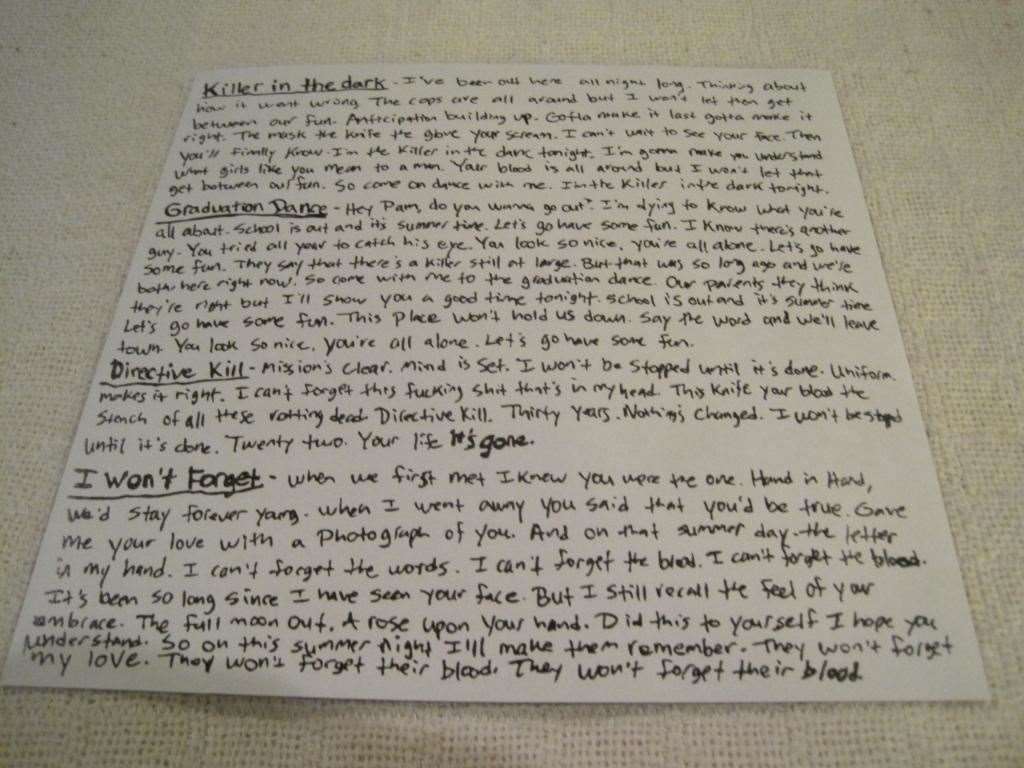 Killer in the dark - I've been out here all night long. Thinking about
how it went wrong. The cops are all around but I won't let them get
between our fun. Anticipation building up. Gotta make it last gotta make it
right. The mask the knife the glove your scream. I can't wait to see your face. Then
you'll finally know. I'm the Killer in the dark tonight. I'm gonna make you understand
what girls like you mean to a man. Your blood is all around but I won't let that
get between our fun. So come on dance with me. I'm the Killer in the dark tonight.
Graduation Dance - Hey Pam, do you wanna go out? I'm dying to know what you're
all about. School is out and it's summer time. Let's go have some fun. I know there's another
guy. You tried all year to catch his eye. You look so nice, you're all alone. Let's go have
some fun. They say that there's a killer still at large. But that was so long ago and we're
both here right now. So come with me to the graduation dance. Our parents they think
they're right but I'll show you a good time tonight. School is out and it's summer time
Let's go have some fun. This place won't hold us down. Say the word and we'll leave
town. You look so nice, you're all alone. Let's go have some fun.
Directive Kill - Mission's clear. Mind is set. I won't be stopped until it's done. Uniform
makes it right. I can't forget this fucking shit that's in my head. This knife your blood the
stench of all these rotting dead. Directive Kill. Thirty years. Nothing's changed. I won't be stopd
until it's done. Twenty two. Your life it's gone.
I Won't Forget - when we first met I knew you were the one. Hand in Hand,
we'd stay forever young. when I went away you said that you'd be true. Gave
me your love with a photograph of you. And on that summer day - the letter
in my hand. I can't forget the words. I can't forget the blood. I can't forget the blood.
It's been so long since I have seen your face. But I still recall the feel of your
embrace. The full moon out. A rose upon your hand. Did this to yourself I hope you
understand. So on this summer night I'll make them remember. They won't forget
my love. They won't forget their blood. They won't forget their blood